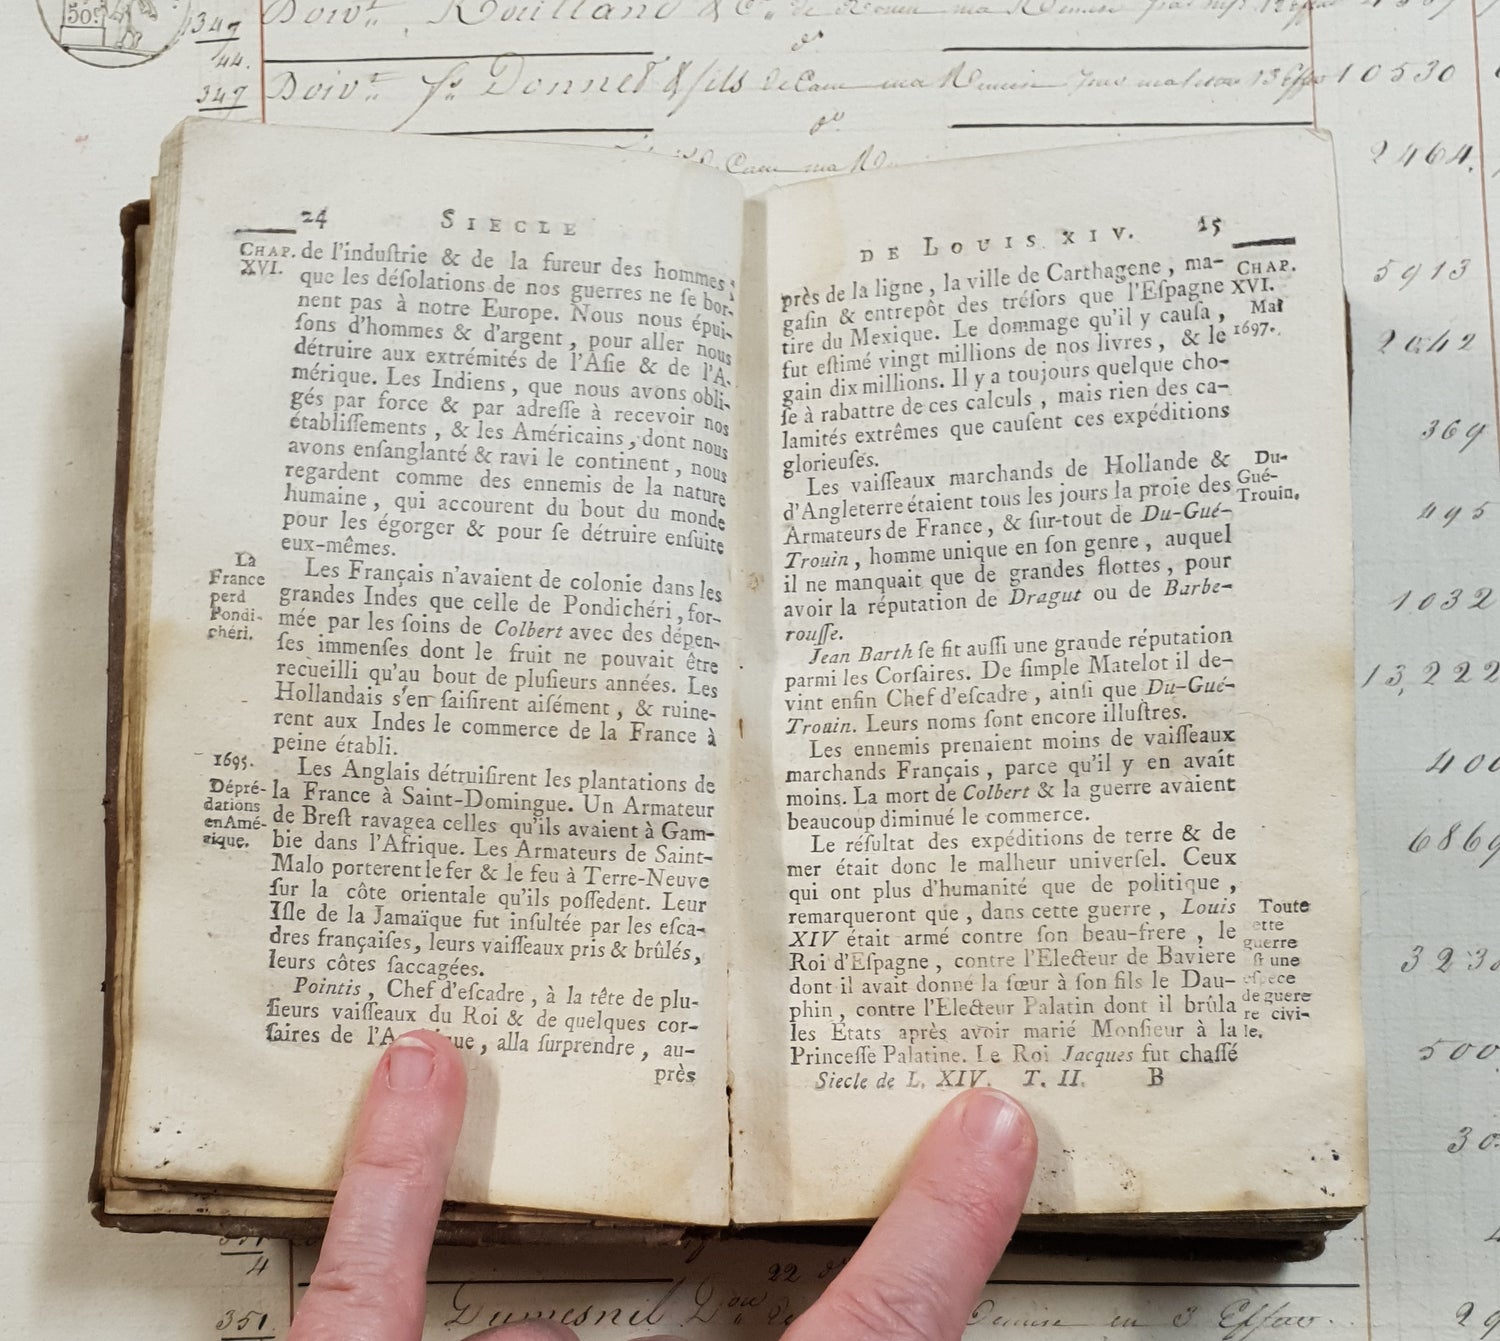 347
44.
Doiv.t Rouilland &
do
347
Doiv.t fs Donnet & fils de Caen ma Remise 10530
do
2464.
5913
2042
369
495
1032
13,222
400
6869
323
500
30
24 SIECLE
CHAP. XVI.
de l'induſtrie & de la fureur des hommes;
que les déſolations de nos guerres ne ſe bor-
nent pas à notre Europe. Nous nous épui-
ſons d'hommes & d'argent, pour aller nous
détruire aux extrémités de l'Aſie & de l'A-
mérique. Les Indiens, que nous avons obli-
gés par force & par adreſſe à recevoir nos
établiſſements, & les Américains, dont nous
avons enſanglanté & ravi le continent, nous
regardent comme des ennemis de la nature
humaine, qui accourent du bout du monde
pour les égorger & pour ſe détruire enſuite
eux-mêmes.
La
France
perd
Pondi-
chéri.
Les Français n'avaient de colonie dans les
grandes Indes que celle de Pondichéri, for-
mée par les ſoins de Colbert avec des dépen-
ſes immenſes dont le fruit ne pouvait être
recueilli qu'au bout de pluſieurs années. Les
Hollandais s'en ſaiſirent aiſément, & ruine-
rent aux Indes le commerce de la France à
peine établi.
1695.
Dépré-
dations
en Amé-
rique.
Les Anglais détruiſirent les plantations de
la France à Saint-Domingue. Un Armateur
de Breſt ravagea celles qu'ils avaient à Gam-
bie dans l'Afrique. Les Armateurs de Saint-
Malo porterent le fer & le feu à Terre-Neuve
ſur la côte orientale qu'ils poſſedent. Leur
Iſle de la Jamaïque fut inſultée par les eſca-
dres françaiſes, leurs vaiſſeaux pris & brûlés,
leurs côtes ſaccagées.
Pointis, Chef d'eſcadre, à la tête de plu-
ſieurs vaiſſeaux du Roi & de quelques cor-
ſaires de l'A que, alla ſurprendre, au-
près
DE LOUIS XIV. 25
CHAP.
XVI.
Mai
1697.
près de la ligne, la ville de Carthagene, ma-
gaſin & entrepôt des tréſors que l'Eſpagne
tire du Mexique. Le dommage qu'il y cauſa,
fut eſtimé vingt millions de nos livres, & le
gain dix millions. Il y a toujours quelque cho-
ſe à rabattre de ces calculs, mais rien des ca-
lamités extrêmes que cauſent ces expéditions
glorieuſes.
Du-
Gué-
Trouin.
Les vaiſſeaux marchands de Hollande &
d'Angleterre étaient tous les jours la proie des
Armateurs de France, & ſur-tout de Du-Gué-
Trouin, homme unique en ſon genre, auquel
il ne manquait que de grandes flottes, pour
avoir la réputation de Dragut ou de Barbe-
rouſſe.
Jean Barth ſe fit auſſi une grande réputation
parmi les Corſaires. De ſimple Matelot il de-
vint enfin Chef d'eſcadre, ainſi que Du-Gué-
Trouin. Leurs noms ſont encore illuſtres.
Les ennemis prenaient moins de vaiſſeaux
marchands Français, parce qu'il y en avait
moins. La mort de Colbert & la guerre avaient
beaucoup diminué le commerce.
Le réſultat des expéditions de terre & de
mer était donc le malheur univerſel. Ceux
qui ont plus d'humanité que de politique,
remarqueront que, dans cette guerre, Louis
XIV était armé contre ſon beau-frere, le
Roi d'Eſpagne, contre l'Electeur de Baviere
dont il avait donné la ſœur à ſon fils le Dau-
phin, contre l'Electeur Palatin dont il brûla
les Etats après avoir marié Monſieur à la
Princeſſe Palatine. Le Roi Jacques fut chaſſé
Toute
ette
guerre
ſt une
eſpece
de guere
re civi-
le.
Siecle de L. XIV. T. II. B
4
22 do
351 Dumesnil Remise en 3 Effets.